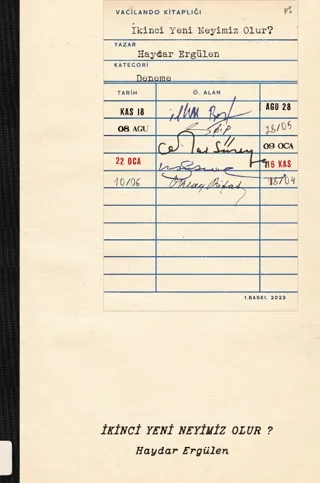 VACILANDO KİTAPLIĞI
pt
İkinci Yeni Neyimiz Olur?
YAZAR
Haydar Ergülen
KATEGORİ
Deneme
TARİH Ö. ALAN
KAS 18 İlhan Berk AGU 28
08 AGU 28/05
Cemal Süreya 09 OCA
22 OCA 16 KAS
10/06 Oktay Rifat 18/04
1.BASKI, 2023
İKİNCİ YENİ NEYİMİZ OLUR ?
Haydar Ergülen